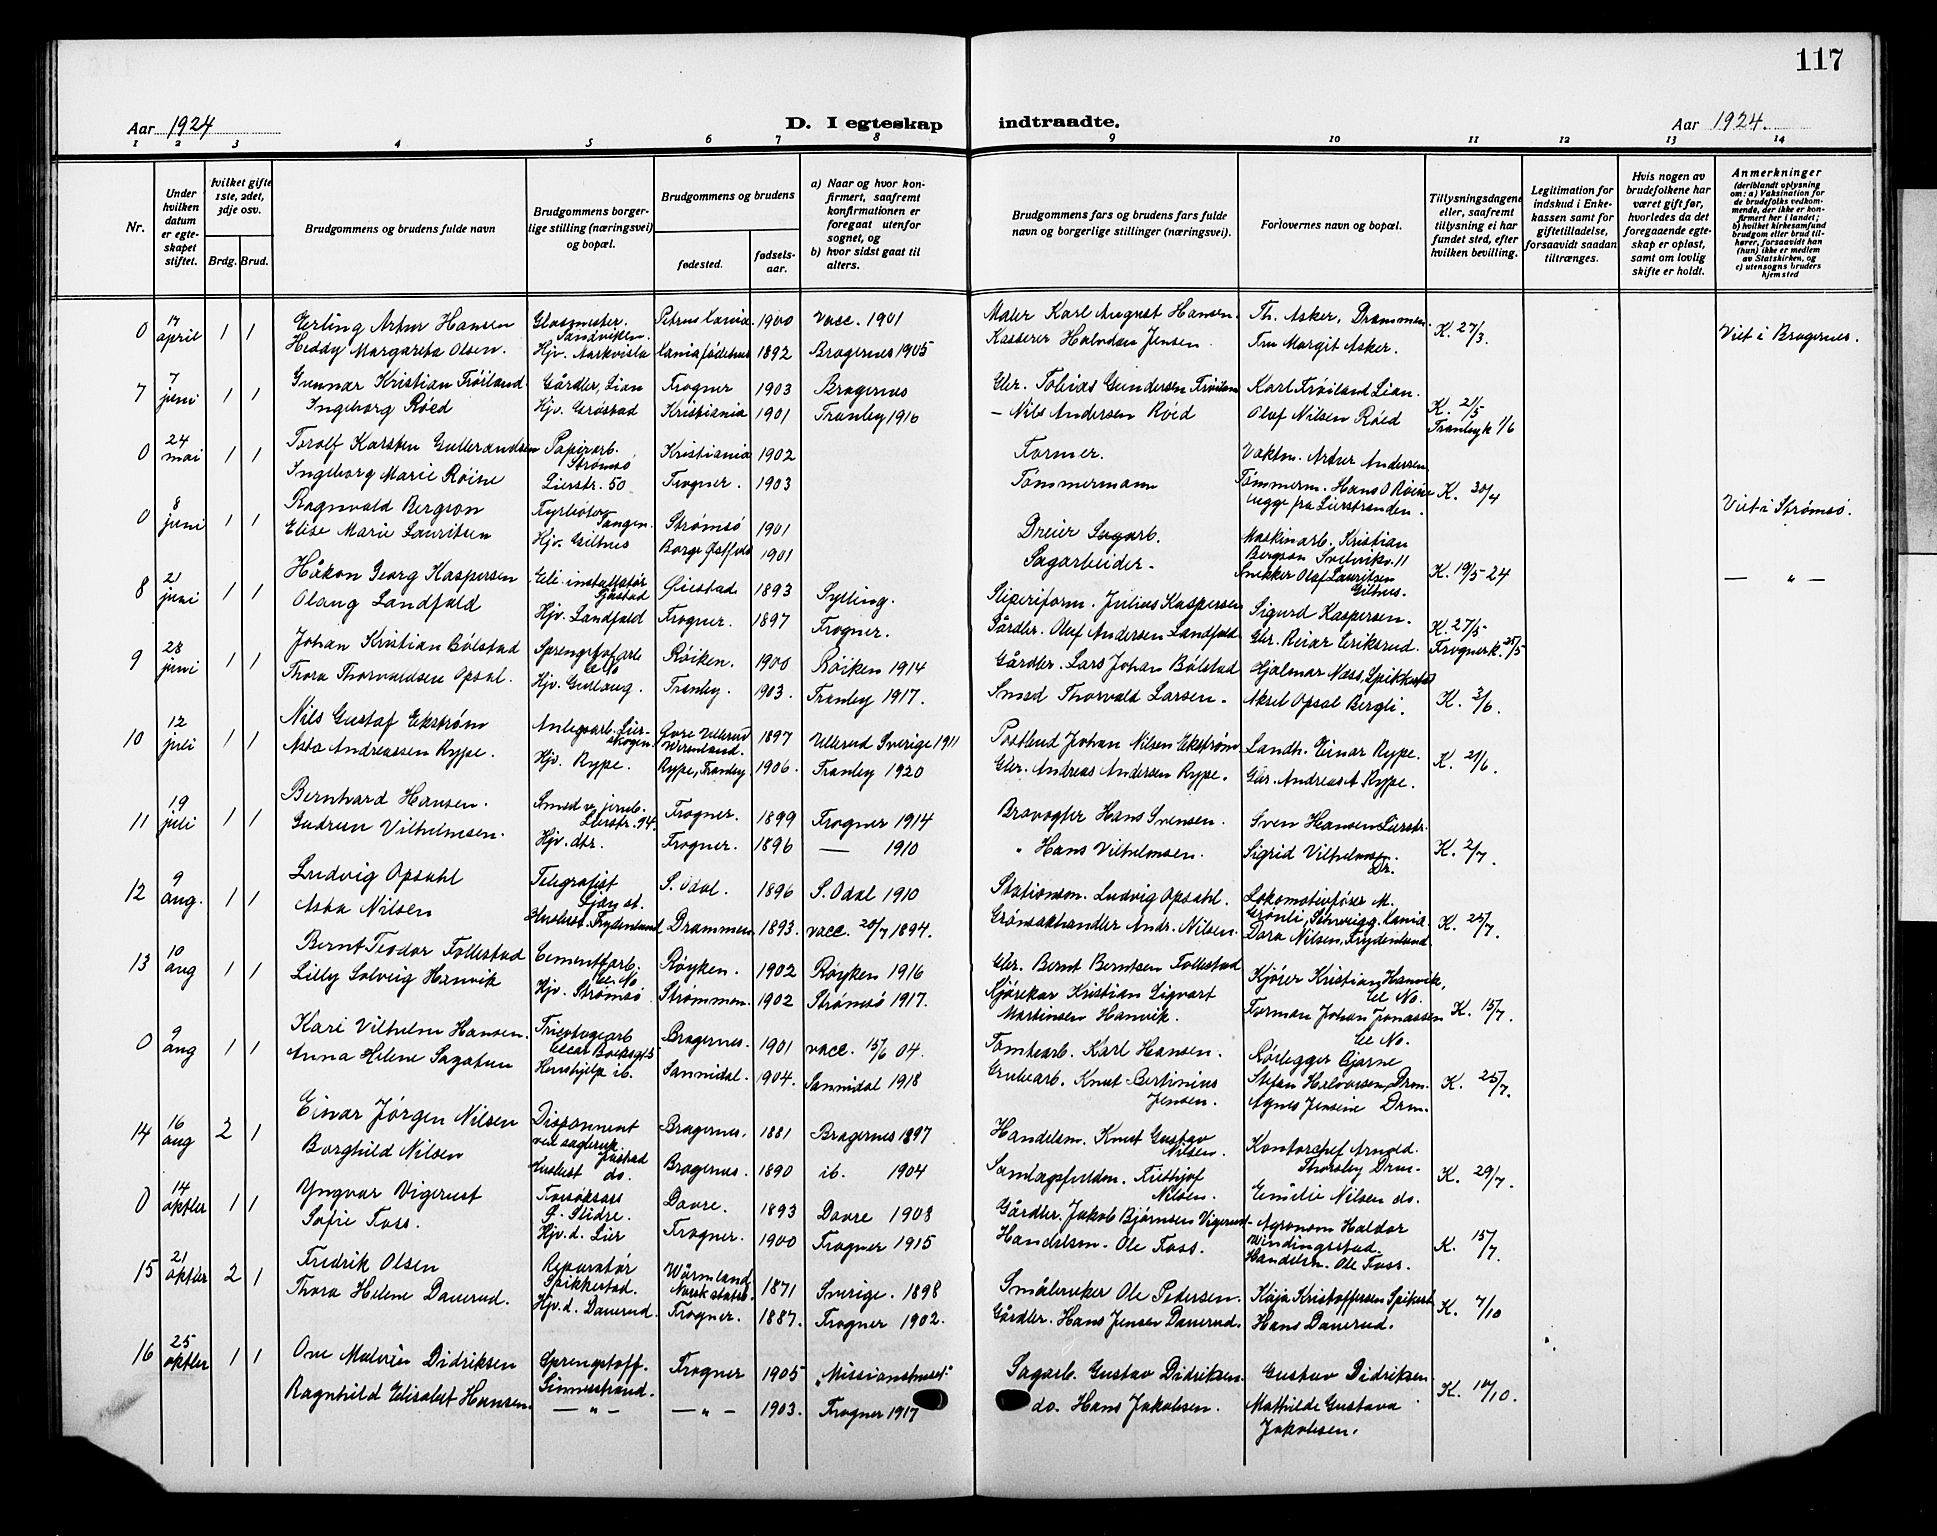 117
Aar 1924
D. I egteskap indtraadte.
Aar 1924.
1 2 3 4 5 6 7 8 9 10 11 12 13 14
Nr.
Under hvilken datum er egteskapet stiftet.
hvilket gifte 1ste, 2det, 3dje osv.
Brdg. Brud.
Brudgommens og brudens fulde navn
Brudgommens borgerlige stilling (næringsvei) og bopæl.
Brudgommens og brudens
fødested.
fødselsaar.
a) Naar og hvor konfirmert, saafremt konfirmationen er foregaat utenfor sognet, og
b) hvor sidst gaat til alters.
Brudgommens fars og brudens fars fulde navn og borgerlige stillinger (næringsvei).
Forlovernes navn og bopæl.
Tillysningsdagene eller, saafremt tillysning ei har fundet sted, efter hvilken bevilling.
Legitimation for indskud i Enkekassen samt for giftetilladelse, forsaavidt saadan tiltrænges.
Hvis nogen av brudefolkene har været gift før, hvorledes da det foregaaende egteskap er opløst, samt om lovlig skifte er holdt.
Anmerkninger
(deriblandt oplysning om: a) Vaksination for de brudefolks vedkommende, der ikke er konfirmert her i landet; b) hvilket kirkesamfund brudgom eller brud tilhører, forsaavidt han (hun) ikke er medlem av Statskirken, og c) utensogns bruders hjemsted
0 17 april 1 1 Erling Artur Hansen Glasmester. Sandviken. 1900 vacc. 1901 Maler Karl August Hansen. Th. Asker, Drammen. K. 27/3. Viet i Bragernes.
Heddy Margareta Olsen. Hjv. 1892 Bragernes 1905 Kasserer Halvdan Jensen Fru Margit Asker.
7 7 juni 1 1 Gunnar Kristian Frøiland Gårdbr, Lian Frogner 1903 Bragernes Gbr. Tobias Gundersen Frøiland Karl Frøiland Lian. K. 21/5
Ingeborg Røed Hjv. Grøstad Kristiania 1901 Tranby 1916 – Nils Andersen Røed Olaf Nilsen Røed Tranby k 1/6
0 24 mai 1 1 Torolf Karsten Gulbrandsen Papirarb. Strømsø Kristiania 1902 Former. Vaktm. Artur Andersen
Ingeborg Marie Røine Lierstr. 50 Frogner. 1903 Tømmermann Tømmerm. Hans O Røine begge fra Lierstranden. K. 30/4
0 8 juni 1 1 Ragnvald Bergson Fyrbøter Tangen. Strømsø 1901 Dreier Sagarb. Maskinarb. Kristian Bergson Svelvikv. 11 Viet i Strømsø.
Elise Marie Lauritsen Hjv. Gilhus Borge Østfold 1901 Sagarbeider. Snekker Olaf Lauritsen Gilhus. K. 19/5-24
8 21 juni 1 1 Håkon Georg Kaspersen Ele. installatør Sjåstad Øiestad 1893 Sylling. Sliperiform. Julius Kaspersen Sigurd Kaspersen. K. 27/5 — " —
Olaug Landfald Hjv. Landfald Frogner. 1897 Frogner. Gårdbr. Olaf Andersen Landfald Gbr. Reiar Eriksrud. Frogner k. 25/5
9 28 juni 1 1 Johan Kristian Bølstad Sprengstofarb Røiken. 1900 Røiken 1914 Gårdbr. Lars Johan Bølstad Hjalmar Næss, Spikkestad
Thora Thorvaldsen Opsal. Hjv. Gullaug. Tranby. 1903. Tranby 1917. Smed Thorvald Larsen. Aksel Opsal Bergli. K. 3/6.
10 12 juli 1 1 Nils Gustaf Ekstrøm Anlegsarb. Lierskogen. Øvre Ullerud Wermland. 1897 Ullerud Sverige 1911 Postbud Johan Nilsen Ekstrøm Landh. Einar Rype.
Asta Andreassen Rype. Hjv. Rype. Rype, Tranby 1906. Tranby 1920 Gbr. Andreas Andersen Rype. Gbr. Andreas A Rype. K. 21/6.
11 19 juli 1 1 Bernhard Hansen. Smed v. jernb. Lierstr. 94. Frogner. 1899 Frogner 1914 Brovogter Hans Svensen. Sven Hansen Lierstr.
Gudrun Vilhelmsen. Hjv. dtr. Frogner. 1896 — 1910 " Hans Vilhelmsen. Sigrid Vilhelmsen. Dr. K. 2/7.
12 9 aug. 1 1 Ludvig Opsahl Telegrafist S. Odal. 1896 S. Odal 1910 Stationsm. Ludvig Opsahl. Lokomotivfører M. Grønli,
Asta Nilsen Husbest. Frydenlund Drammen 1893. vacc. 20/7 1894. Grønsakhandler Andr. Nilsen. Dora Nilsen, Frydenlund K. 25/7.
13 10 aug 1 1 Bernt Teodor Follestad Cementarb. Røyken. 1902 Røyken 1916 Gbr. Bernt Berntsen Follestad Kjører Kristian Hanvik,
Lilly Solveig Hanvik Hjv. Strømsø Strømmen. 1902 Strømsø 1917. Kjørekar Kristian Sigvart Martinsen Hanvik. Forman Johan Jonassen K. 15/7.
0 9 aug 1 1 Kari Vilhelm Hansen. Bragernes. 1901 vacc. 15/6 04. Tomtearb. Karl Hansen. Rørlegger Bjarne Stefan Halvorsen, Drm.
Anna Helene Sagatun Hushjelp ib. Sannidal. 1904. Sannidal 1918 Grubearb. Knut Bertinius Jensen. Agnes Jensine Drm. K. 25/7.
14 16 aug 2 1 Einar Jørgen Nilsen Disponent ved sagbruk. Sjåstad Bragernes. 1881 Bragernes 1897 Handelsm. Knut Gustav Nilsen. Kontorchef Arnold Thorsby Drm.
Borghild Nilsen Husbest do. Bragernes. 1890 ib. 1904 Fridtjof Nilsen. Emilie Nilsen do. K. 29/7.
0 14 oktbr 1 1 Yngvar Vigerust Forsøksass Ø. Slidre. Dovre. 1893 Dovre 1908 Gårdbr. Jakob Bjørnsen Vigerust Agronom Haldor Windingstad.
Sofie Foss. Hjv. d. Lier Frogner. 1900 Frogner 1915 Handelsm. Ole Foss. Handelsm. Ole Foss. K. 15/7.
15 21 oktbr 2 1 Fredrik Olsen Reparatør Spikkestad. Wärmland Norsk statsb. 1871 Sverige. 1898 Småbruker Ole Pedersen. Kaja Kristoffersen Spikest
Thora Helene Dauerud. Hjv. d. Dauerud. Frogner. 1887. Frogner 1902. Gårdbr. Hans Jensen Dauerud. Hans Dauerud. K. 7/10
16 25 oktbr 1 1 Ove Malvin Didriksen Sprengstoff. Linnesstrand. Frogner 1905 "Missionshuset" Sagarb. Gustav Didriksen. Gustav Didriksen
Ragnhild Elisabet Hansen. — " — — " — 1903. Frogner 1917 do. Hans Jakobsen. Mathilde Gustava Jakobsen. K. 10/10.